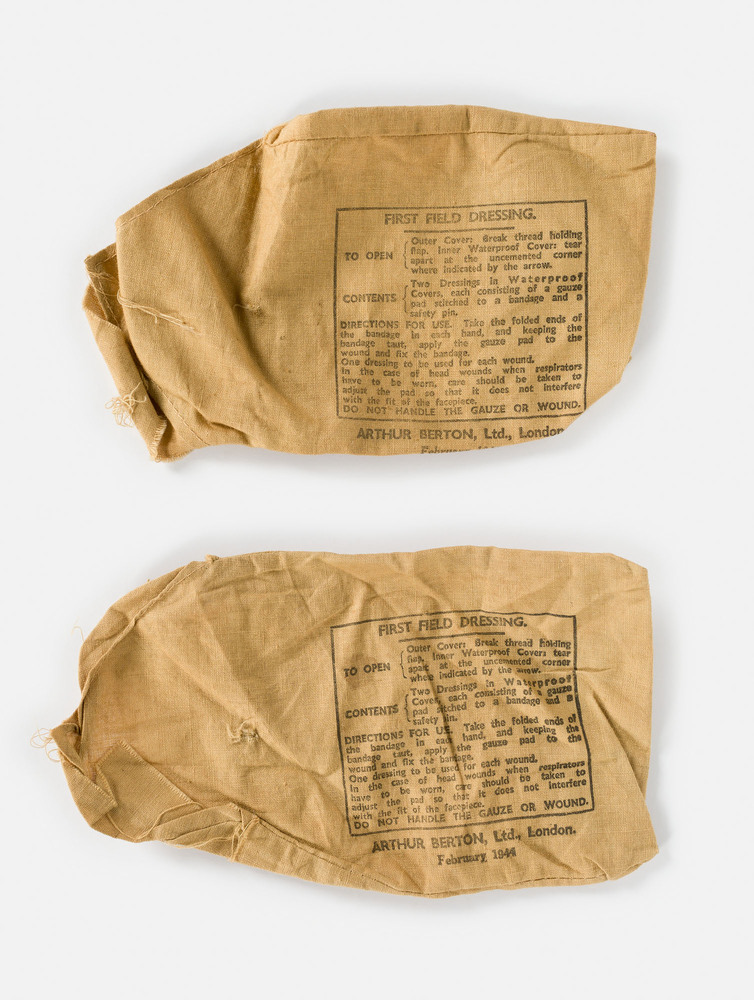 FIRST FIELD DRESSING.
TO OPEN { Outer Cover: Break thread holding
flap. Inner Waterproof Cover: tear
apart at the uncemented corner
where indicated by the arrow.
CONTENTS { Two Dressings in Waterproof
Covers, each consisting of a gauze
pad stitched to a bandage and a
safety pin.
DIRECTIONS FOR USE. Take the folded ends of
the bandage in each hand, and keeping the
bandage taut, apply the gauze pad to the
wound and fix the bandage.
One dressing to be used for each wound.
In the case of head wounds when respirators
have to be worn, care should be taken to
adjust the pad so that it does not interfere
with the fit of the facepiece.
DO NOT HANDLE THE GAUZE OR WOUND.
ARTHUR BERTON, Ltd., London
FIRST FIELD DRESSING.
TO OPEN { Outer Cover: Break thread holding
flap. Inner Waterproof Cover: tear
apart at the uncemented corner
where indicated by the arrow.
CONTENTS { Two Dressings in Waterproof
Cover, each consisting of a gauze
pad stitched to a bandage and a
safety pin.
DIRECTIONS FOR USE. Take the folded ends of
the bandage in each hand, and keeping the
bandage taut, apply the gauze pad to the
wound and fix the bandage.
One dressing to be used for each wound.
In the case of head wounds when respirators
have to be worn, care should be taken to
adjust the pad so that it does not interfere
with the fit of the facepiece.
DO NOT HANDLE THE GAUZE OR WOUND.
ARTHUR BERTON, Ltd., London.
February 1944